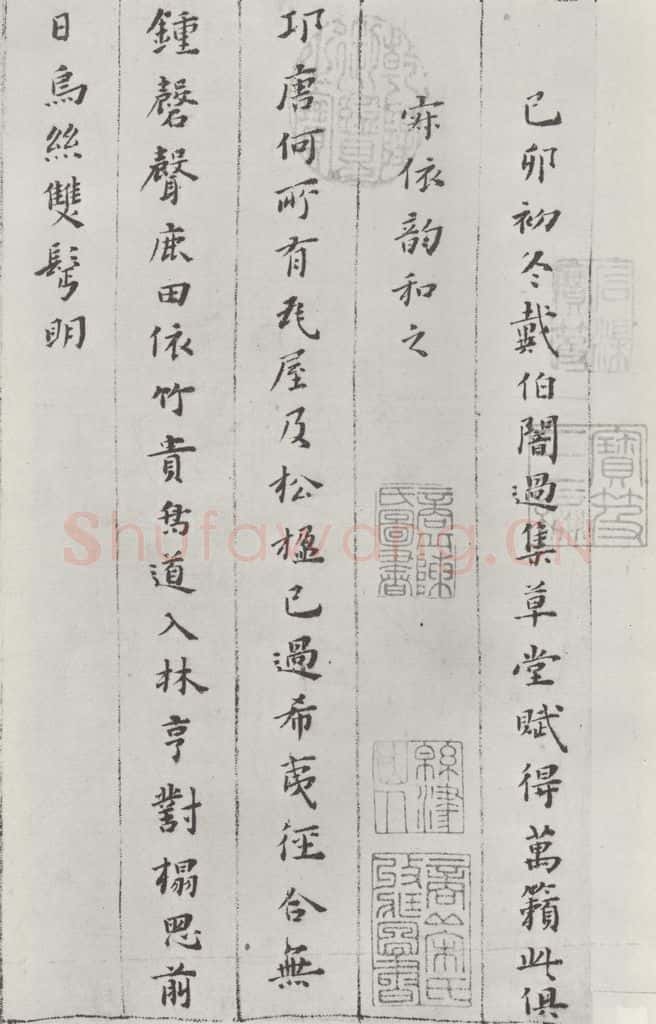 己卯初冬戴伯闇過集草堂賦得萬籟此俱
寂依韵和之
邛唐何所有瓦屋及松楹已過希夷徑合無
鍾磬聲鹿田依竹貴道入林亨對榻思前
日烏絲雙鬢明
緜津山人
Shufawang.CN